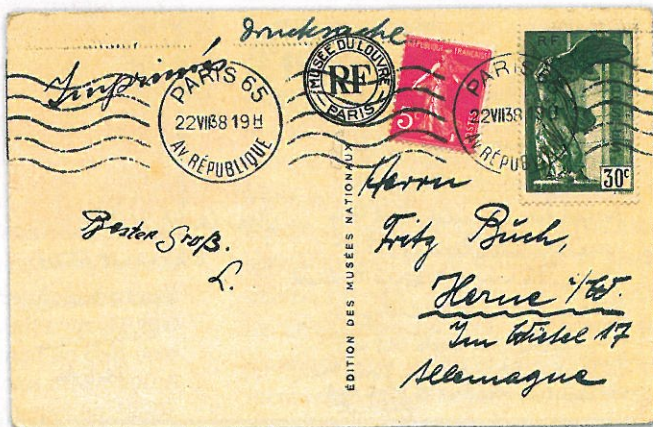 Drucksache
Imprimés
PARIS 65
22VII38 19H
AV. RÉPUBLIQUE
MUSÉE DU LOUVRE
RF
PARIS
RÉPUBLIQUE FRANÇAISE
5c
PARIS
22VII38 19
AV. RÉPUB
RF
30c
Bester Gruß.
L.
ÉDITION DES MUSÉES NATIONAUX
Herrn
Fritz Büch,
Herne i/W.
Im 17
Allemagne